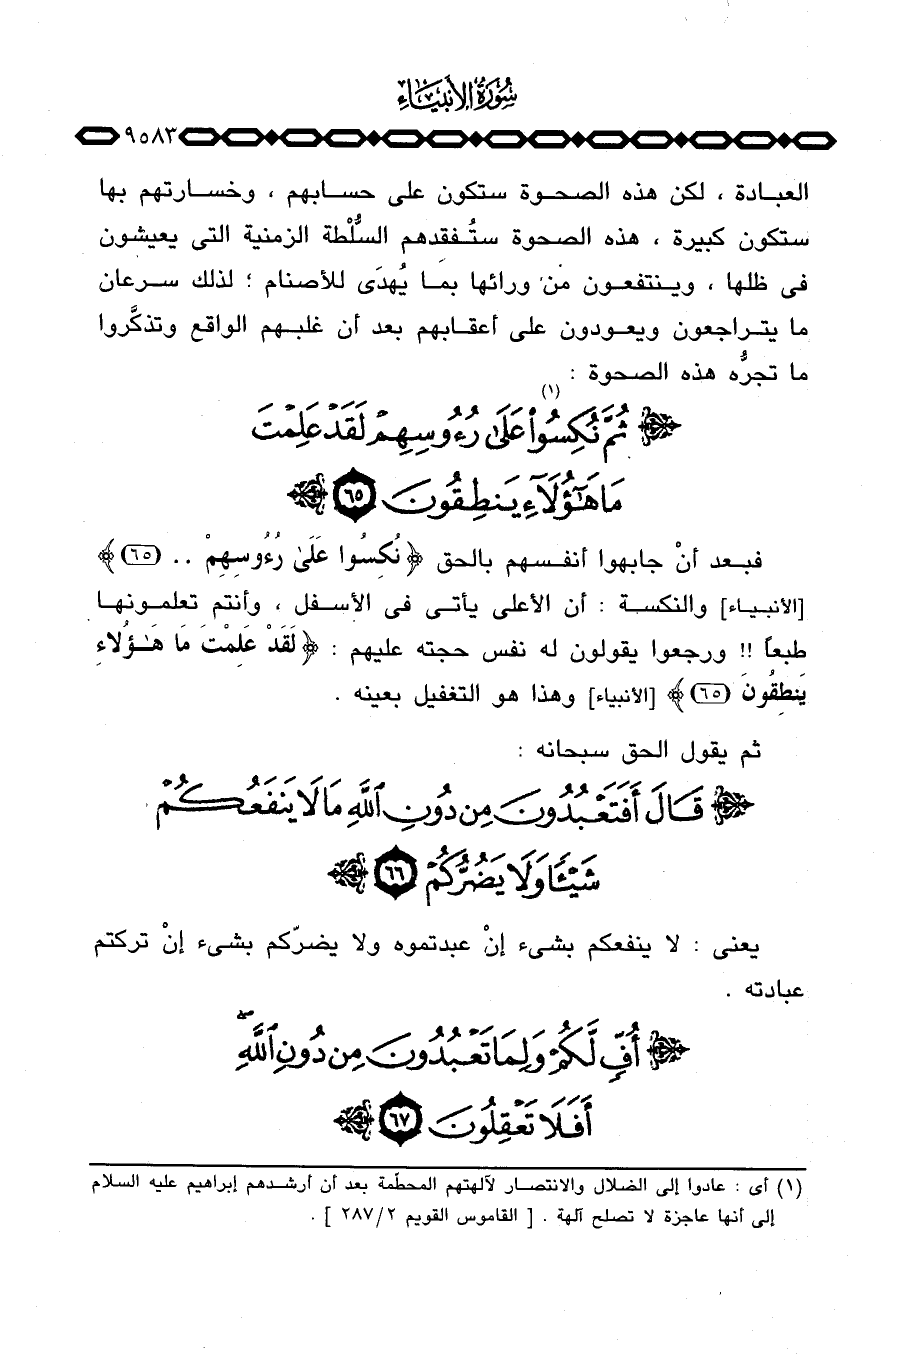 سُورَةُ الأَنبِيَاءِ
٩٥٨٣
العبادة ، لكن هذه الصحوة ستكون على حسابهم ، وخسارتهم بها
ستكون كبيرة ، هذه الصحوة ستُفقدهم السُّلْطة الزمنية التى يعيشون
فى ظلها ، وينتفعون من ورائها بما يُهدَى للأصنام ؛ لذلك سرعان
ما يتراجعون ويعودون على أعقابهم بعد أن غلبهم الواقع وتذكَّروا
ما تجرُّه هذه الصحوة :
ثُمَّ نُكِسُوا۟ (١) عَلَىٰ رُءُوسِهِمْ لَقَدْ عَلِمْتَ
مَا هَٰٓؤُلَآءِ يَنطِقُونَ ٦٥
فبعد أنْ جابهوا أنفسهم بالحق ﴿ نُكِسُوا عَلَىٰ رُءُوسِهِمْ .. (٦٥) ﴾
[الأنبياء] والنكسة : أن الأعلى يأتى فى الأسفل ، وأنتم تعلمونها
طبعاً !! ورجعوا يقولون له نفس حجته عليهم : ﴿ لَقَدْ عَلِمْتَ مَا هَـٰؤُلاءِ
يَنطِقُونَ (٦٥) ﴾ [الأنبياء] وهذا هو التغفيل بعينه .
ثم يقول الحق سبحانه :
قَالَ أَفَتَعْبُدُونَ مِن دُونِ ٱللَّهِ مَا لَا يَنفَعُكُمْ
شَيْـًٔا وَلَا يَضُرُّكُمْ ٦٦
يعنى : لا ينفعكم بشىء إنْ عبدتموه ولا يضرّكم بشىء إنْ تركتم
عبادته .
أُفٍّ لَّكُمْ وَلِمَا تَعْبُدُونَ مِن دُونِ ٱللَّهِۖ
أَفَلَا تَعْقِلُونَ ٦٧
(١) أى : عادوا إلى الضلال والانتصار لآلهتهم المحطّمة بعد أن أرشدهم إبراهيم عليه السلام
إلى أنها عاجزة لا تصلح آلهة . [ القاموس القويم ٢٨٧/٢ ] .